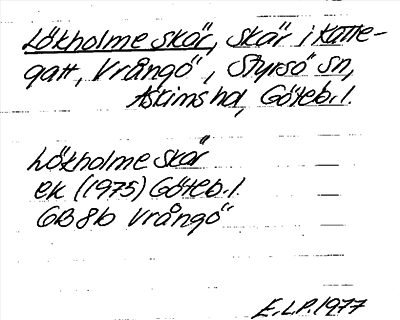 Lökholme skär, skär i Katte-
gatt, Vrångö, Styrsö sn,
Askims hd, Göteb. l.
Lökholme skär
ek (1975) Göteb. l.
GB 8b Vrångö
E.L.P. 1977